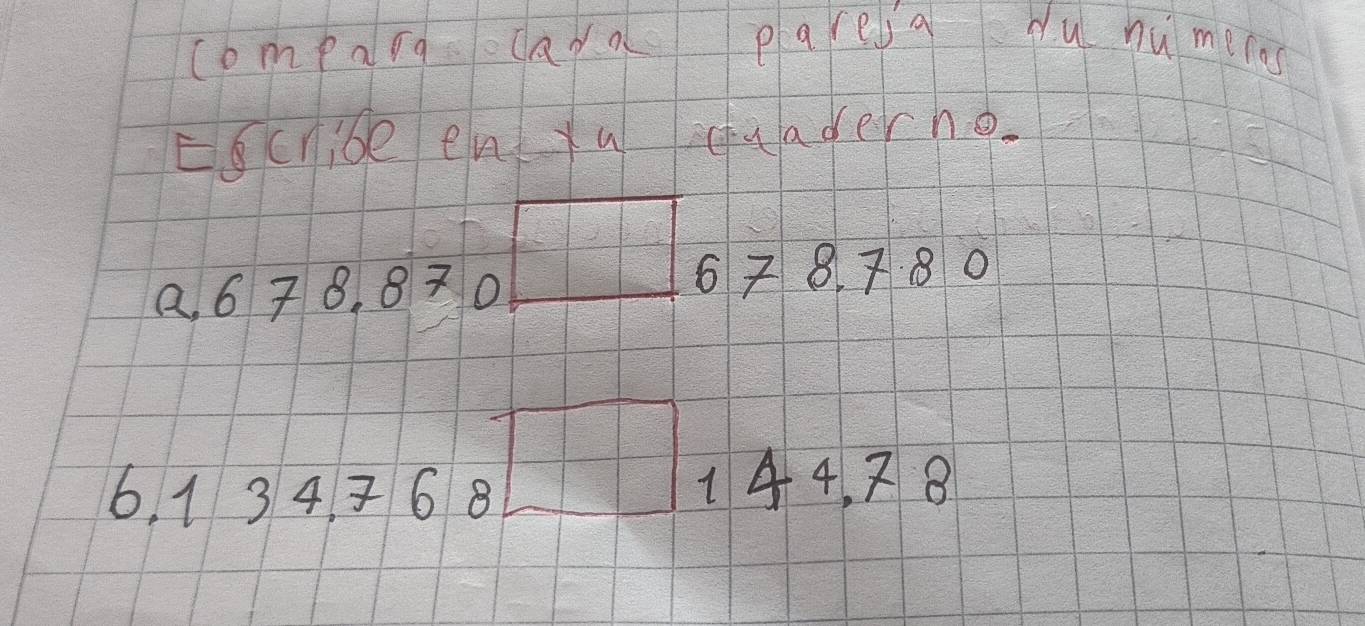 compara cada pareja du números
Escribe en tu cuaderno.
a. 678.870 678.780
b. 134.768 144.78